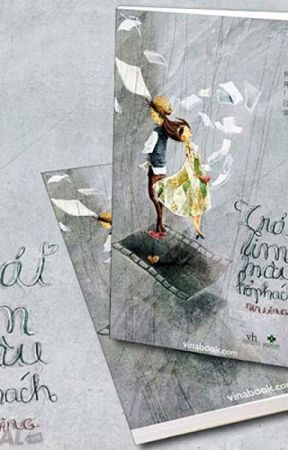 Trái
tim
màu
hổ phách
vh
vinabook.com
ái
m
àu
hách
vinabook.com